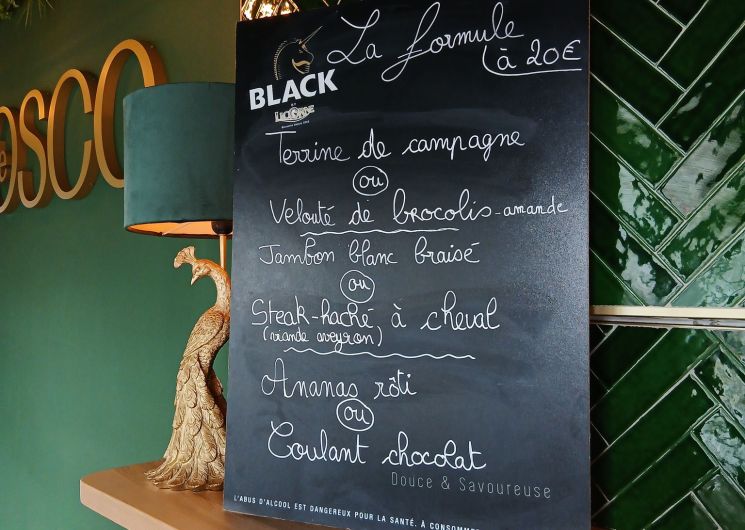 OSCO
La formule
à 20€
BLACK
BY
LICORNE
Terrine de campagne
ou
Velouté de brocolis-amande
Jambon blanc braisé
ou
Steak-haché à cheval
(viande aveyron)
Ananas rôti
ou
Coulant chocolat
Douce & Savoureuse
L'ABUS D'ALCOOL EST DANGEREUX POUR LA SANTÉ. À CONSOMME